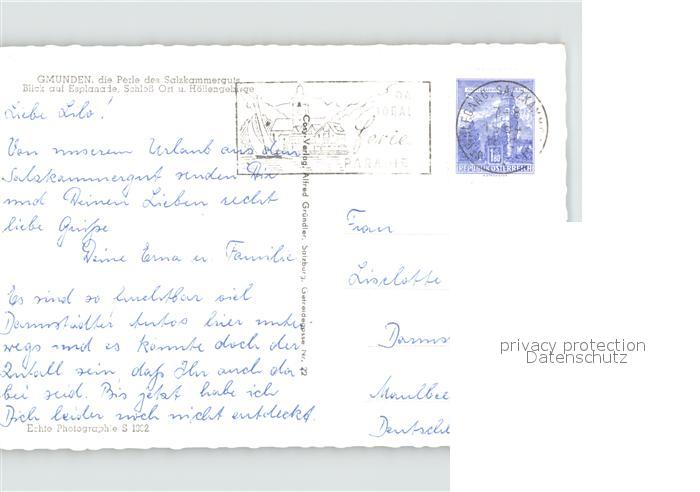 GMUNDEN, die Perle des Salzkammerguts
Blick auf Esplanade, Schloß Ort u. Höllengebirge
Liebe Lilo!
Von unserem Urlaub aus dem
Salzkammergut senden Dir
und Deinen Lieben recht
liebe Grüße
Deine Erna u. Familie
Es sind so furchtbar viel
Darmstädter Autos hier unter-
wegs und es könnte doch der
Zufall sein, daß Ihr auch da
bei seid. Bis jetzt habe ich
Dich leider noch nicht entdeckt.
Echte Photographie S 1302
Cosy-Verlag, Alfred Gründler, Salzburg, Getreidegasse Nr. 22
IDEAL
Ferien
PARADIES
1.50
REPUBLIK ÖSTERREICH
Frau
Liselotte
Darms
Maulbee
Deutschl
privacy protection
Datenschutz